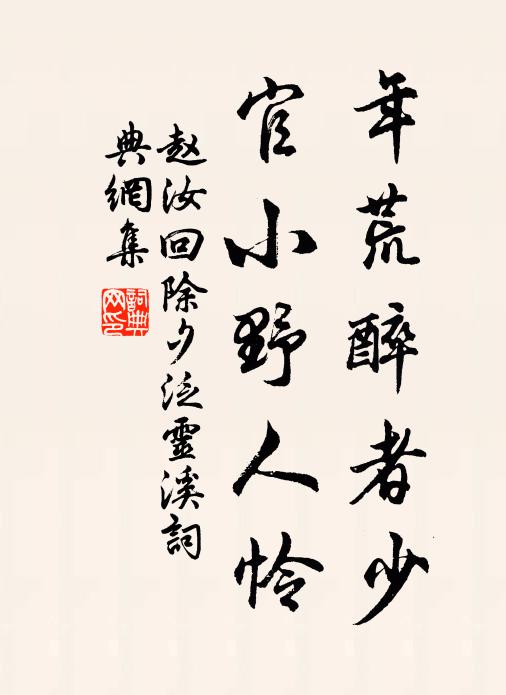 年荒醉者少
官小野人怜
赵汝回除夕泛靈溪詞
典網集
詞典
网印